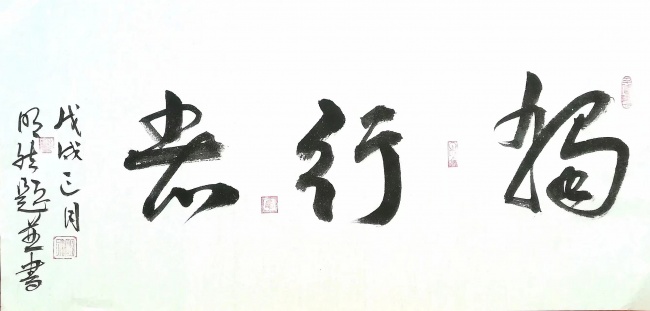 獨行者
戊戌正月
明然題並書